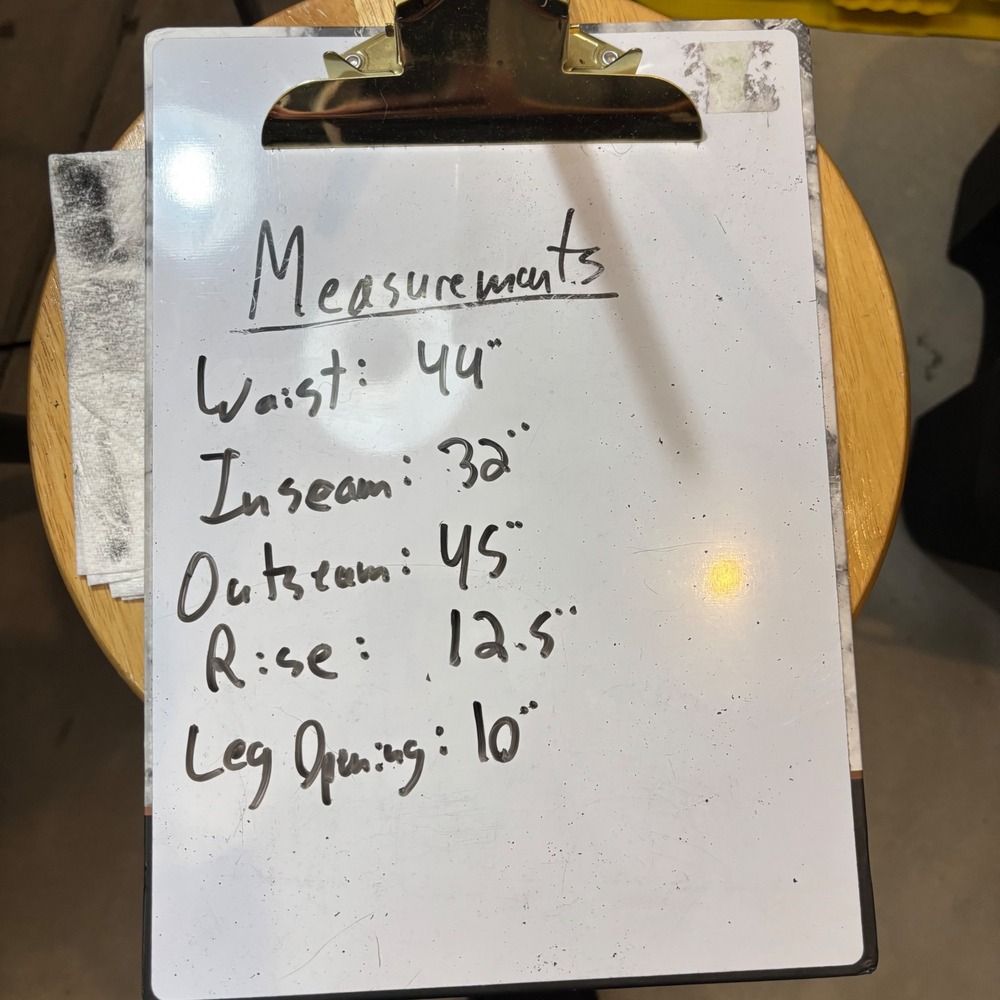 Measurements
Waist: 44"
Inseam: 32"
Outseam: 45"
Rise: 12.5"
Leg Opening: 10"